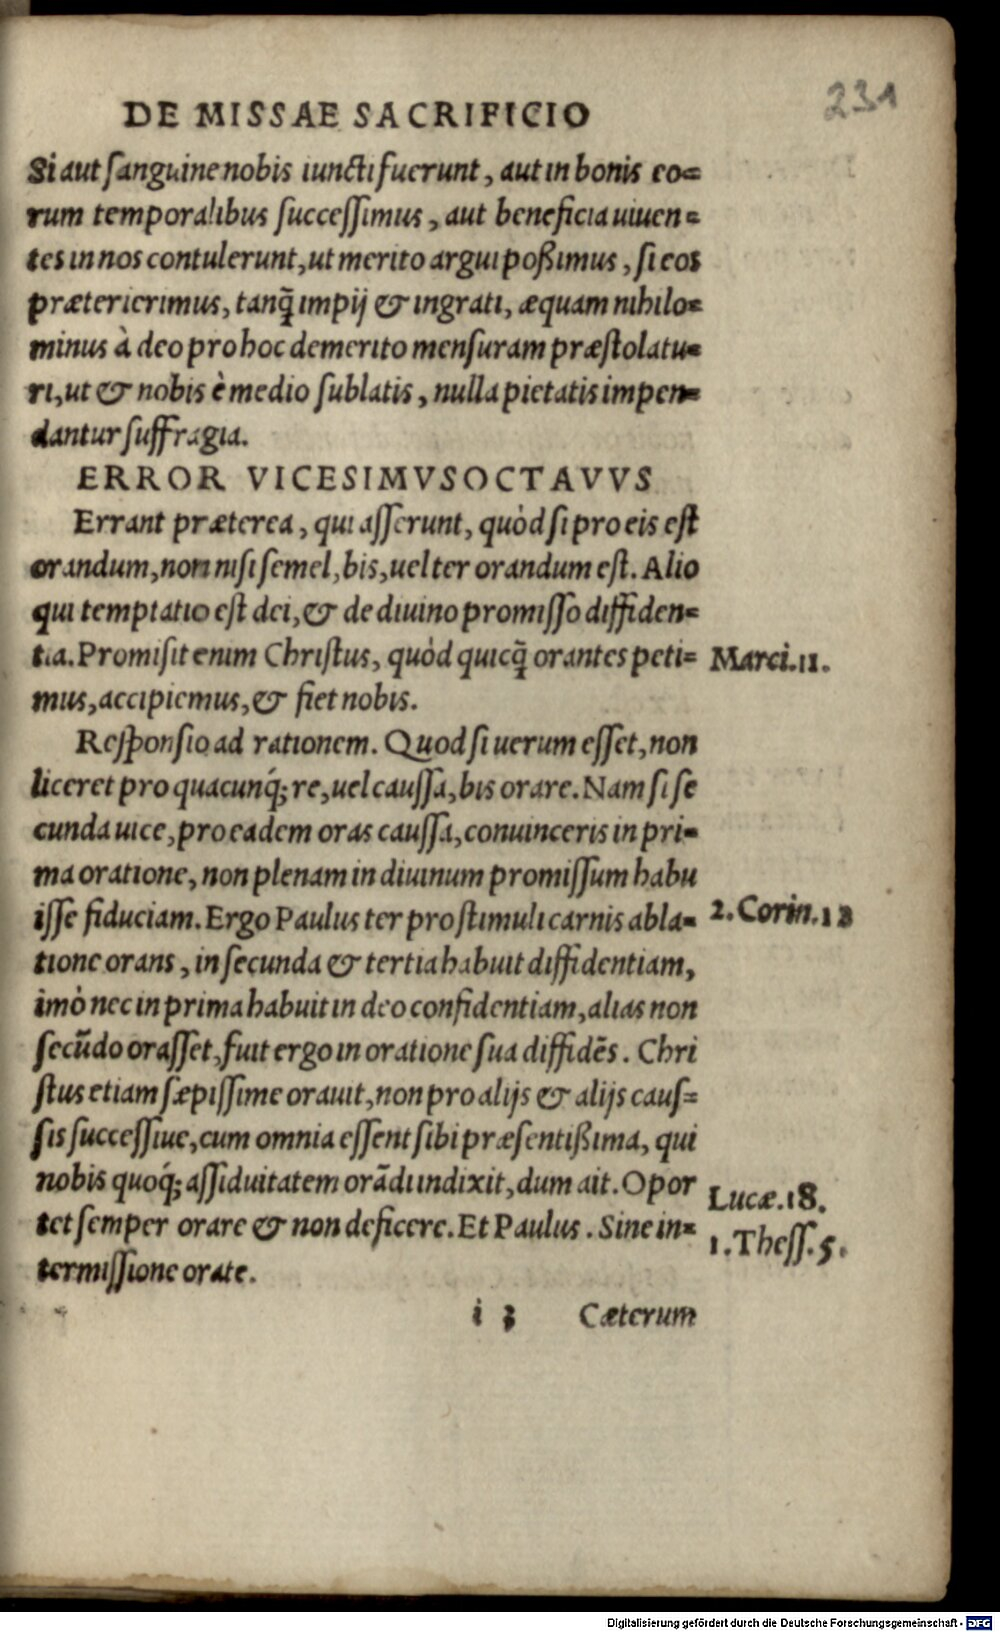 231
DE MISSAE SACRIFICIO
Si aut sanguine nobis iuncti fuerunt, aut in bonis eo=
rum temporalibus successimus, aut beneficia uiuen=
tes in nos contulerunt, ut merito argui poßimus, si eos
præterierimus, tanq̃ impij & ingrati, æquam nihilo=
minus à deo pro hoc demerito mensuram præstolatu=
ri, ut & nobis è medio sublatis, nulla pietatis impen=
dantur suffragia.
ERROR VICESIMVSOCTAVVS
Errant præterea, qui asserunt, quòd si pro eis est
orandum, non nisi semel, bis, uel ter orandum est. Alio
qui temptatio est dei, & de diuino promisso diffiden=
tia. Promisit enim Christus, quòd quicq̃ orantes peti=
Marci.11.
mus, accipiemus, & fiet nobis.
Responsio ad rationem. Quod si uerum esset, non
liceret pro quacunq́; re, uel caussa, bis orare. Nam si se
cunda uice, pro eadem oras caussa, conuinceris in pri=
ma oratione, non plenam in diuinum promissum habu
isse fiduciam. Ergo Paulus ter pro stimuli carnis abla=
2. Corin.12
tione orans, in secunda & tertia habuit diffidentiam,
imò nec in prima habuit in deo confidentiam, alias non
secũdo orasset, fuit ergo in oratione sua diffidẽs. Chri
stus etiam sæpissime orauit, non pro alijs & alijs caus=
sis successiue, cum omnia essent sibi præsentißima, qui
nobis quoq́; assiduitatem orãdi indixit, dum ait. Opor
Lucæ.18.
tet semper orare & non deficere. Et Paulus. Sine in=
1.Thess.5.
termissione orate.
i 3 Cæterum
Digitalisierung gefördert durch die Deutsche Forschungsgemeinschaft - DFG